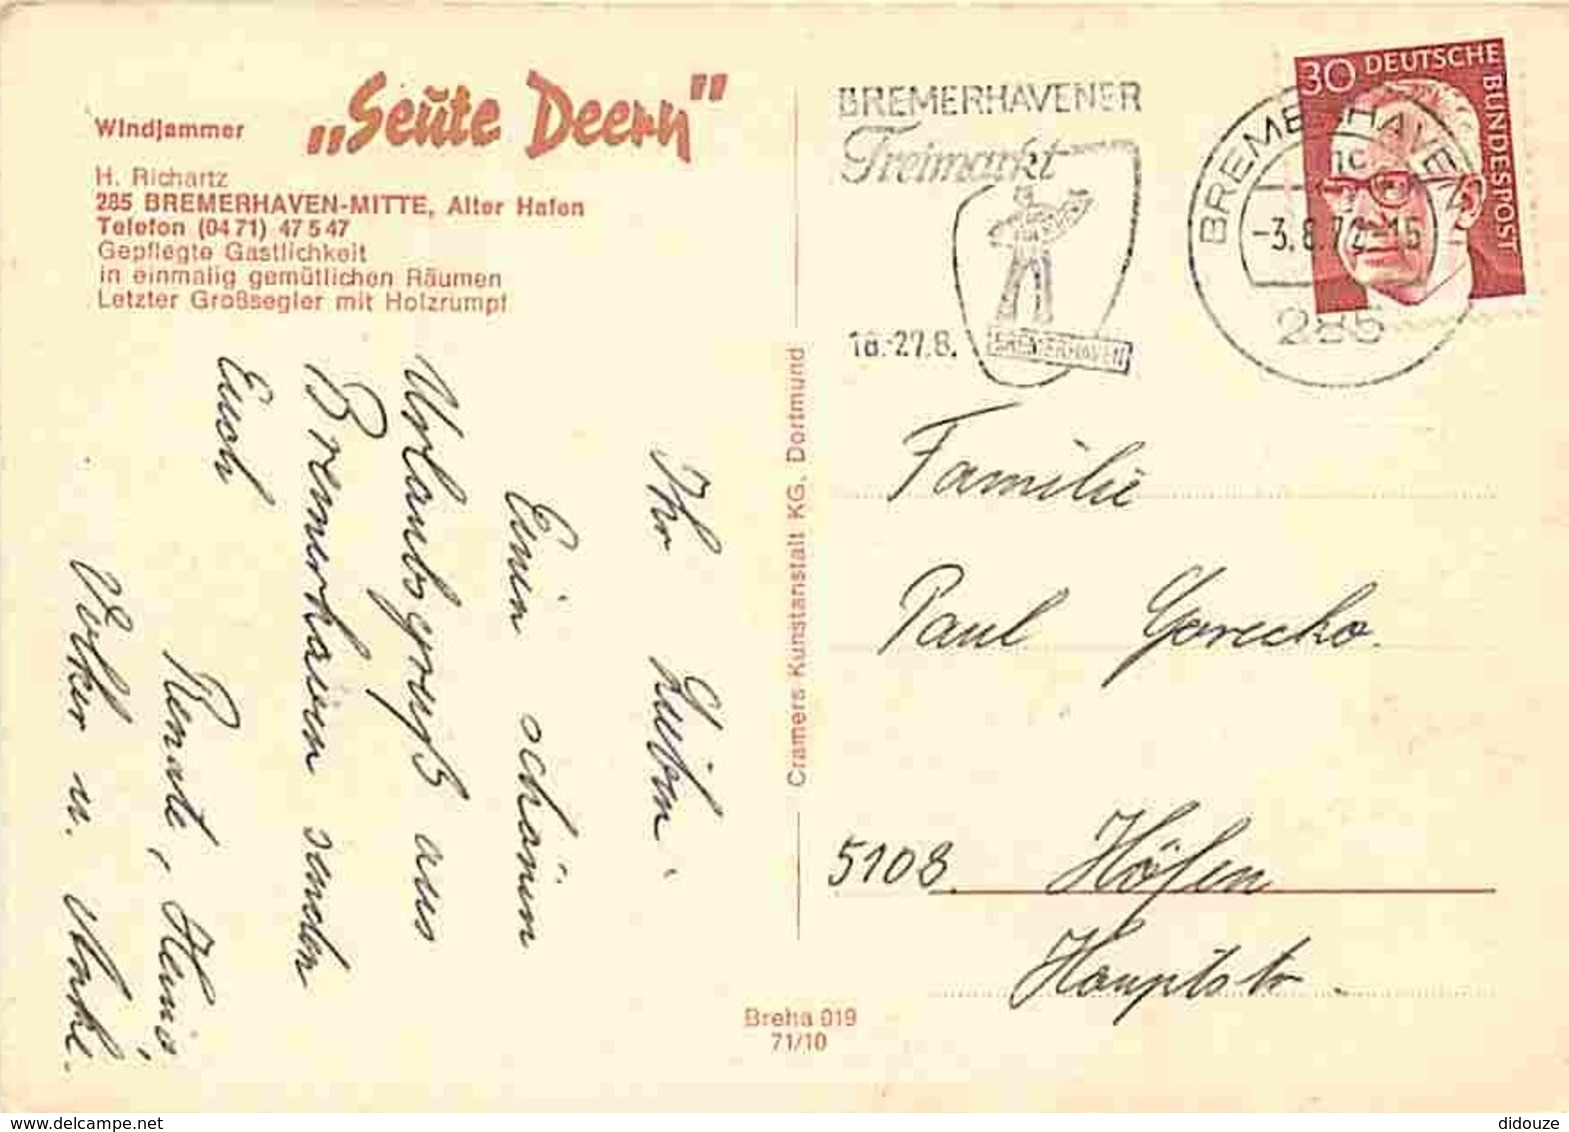 Windjammer
„Seute Deern"
H. Richartz
285 BREMERHAVEN-MITTE, Alter Hafen
Telefon (04 71) 4 75 47
Gepflegte Gastlichkeit
in einmalig gemütlichen Räumen
Letzter Großsegler mit Holzrumpf
Ihr Lieben.
Einen schönen
Urlaubsgruß aus
Bremerhaven senden
Euch
Renate, Heinz,
Volker u.
Cramers Kunstanstalt KG, Dortmund
Breha 019
71/10
BREMERHAVENER
Freimarkt
18.-27.8.
BREMERHAVEN
30 DEUTSCHE
BUNDESPOST
BREMERHAVEN
-3.8.72-15
285
Familie
Paul Gorecko.
5108 Höfen
Hauptstr.
delcampe.net
didouze